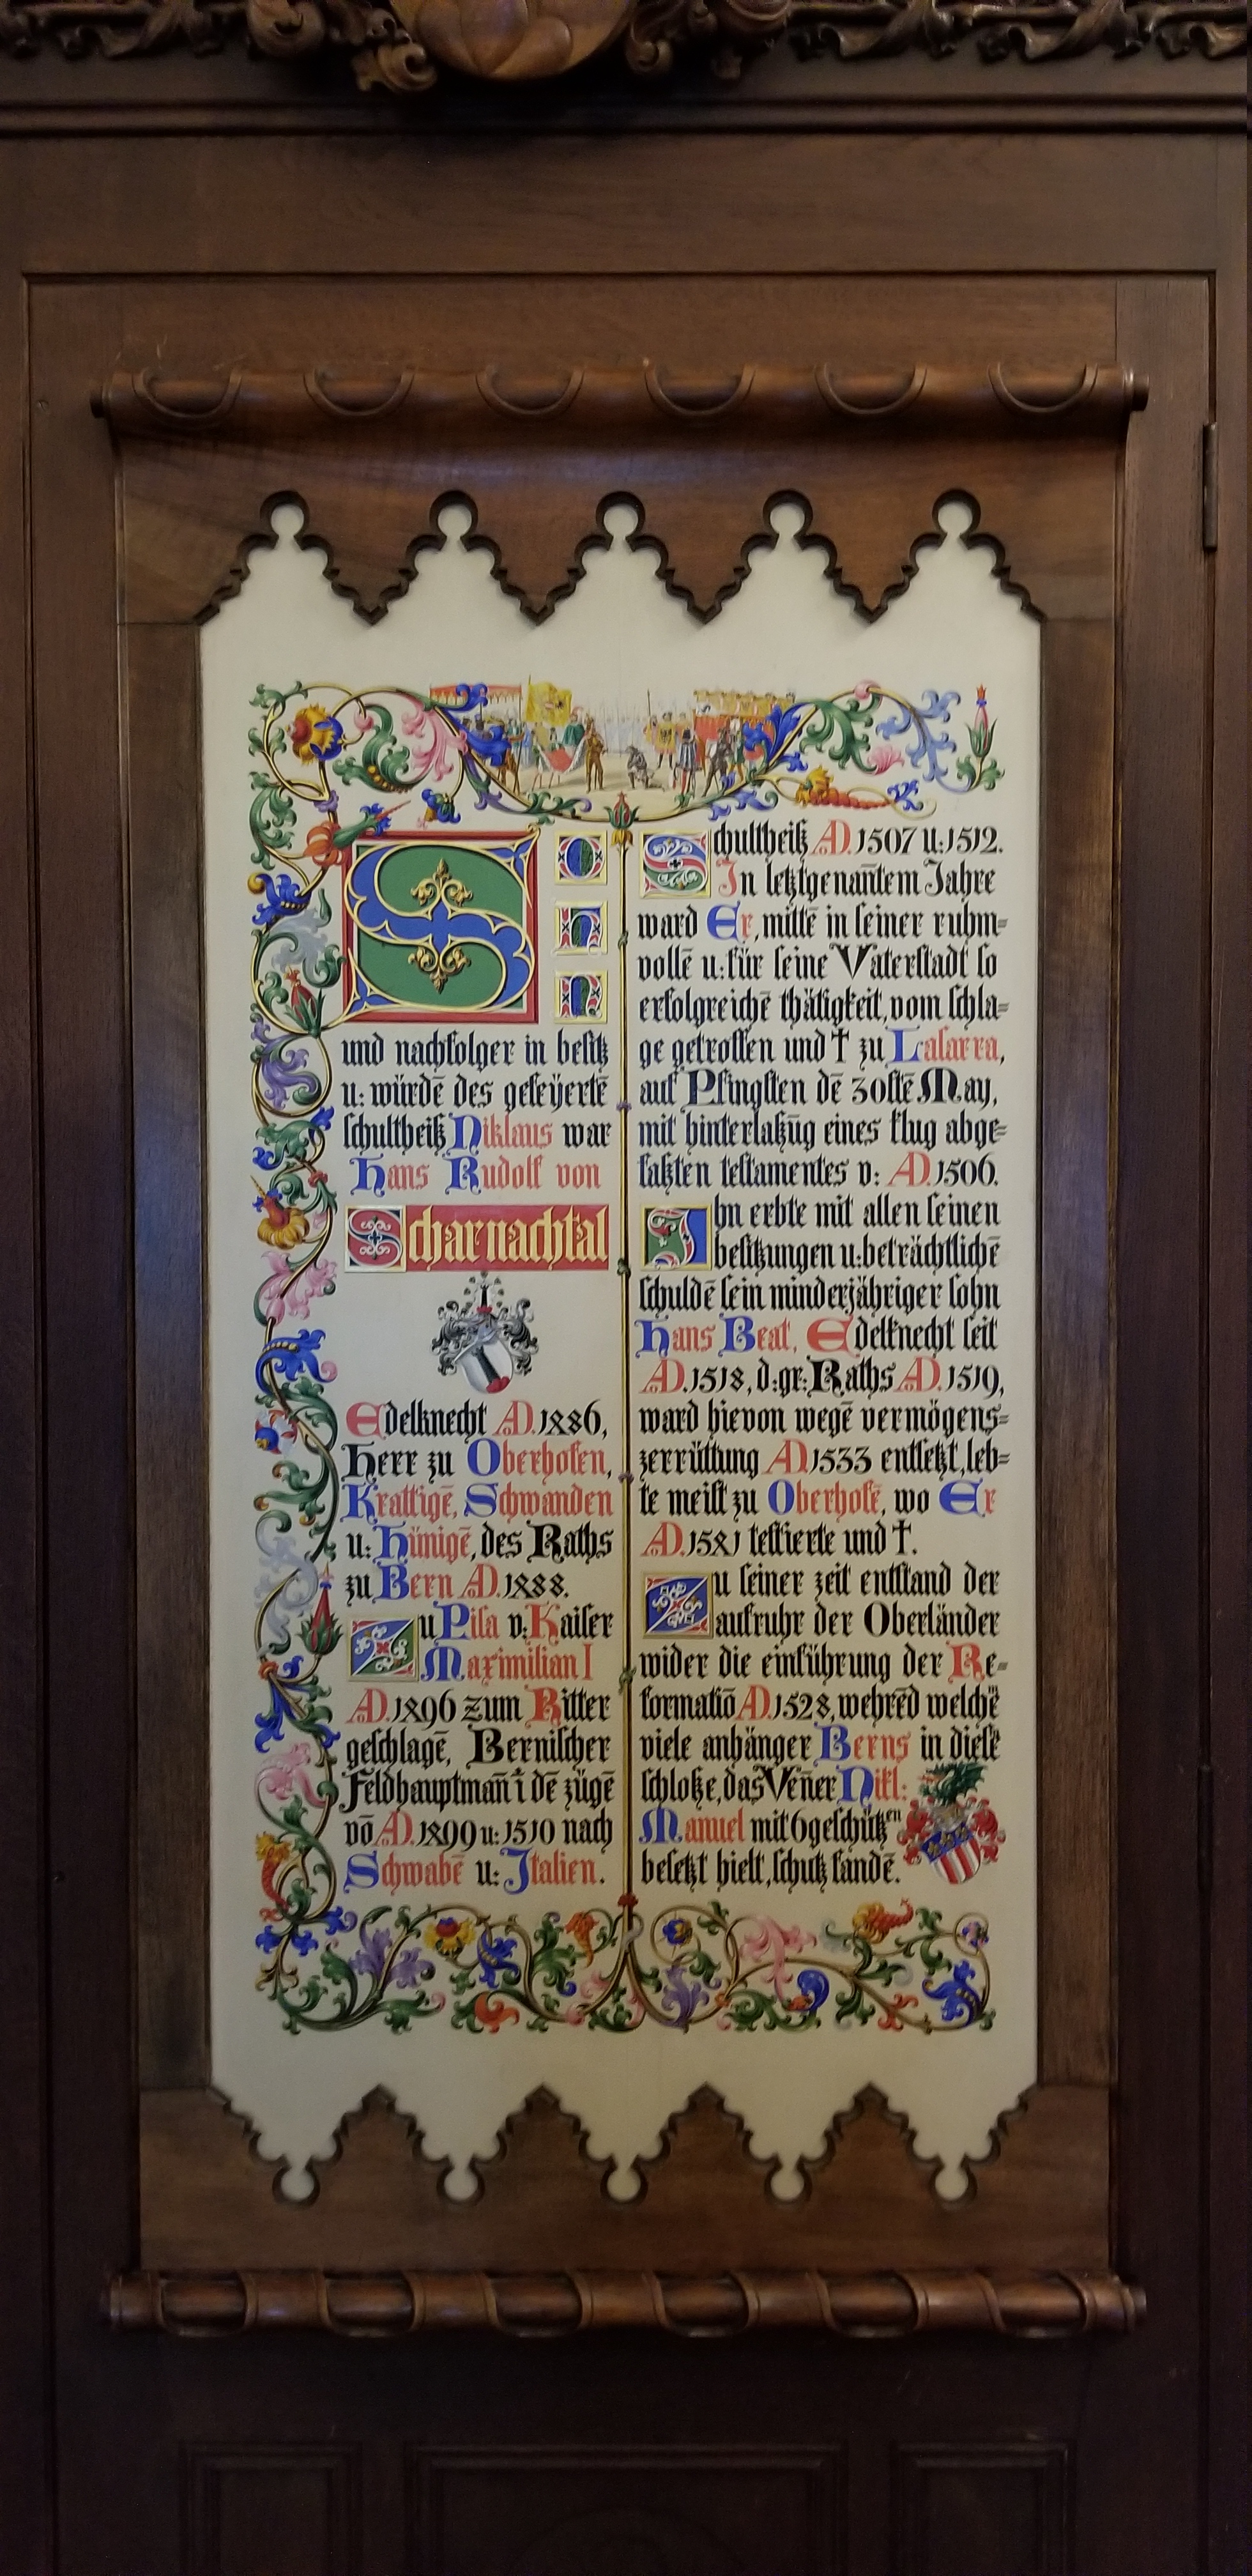 Sohn
und nachfolger in besitz
u: würdē des gefeÿertē
schultheiß Niklaus war
Hans Rudolf von
Scharnachtal
Edelknecht AD. 1486,
Herr zu Oberhofen,
Krattigē, Schwanden
u: Hünigē, des Raths
zu Bern AD. 1488.
Zu Pisa v: Kaiser
Maximilian I
AD. 1496 zum Ritter
geschlagē, Bernischer
Feldhauptmañ ī dē zügē
vō AD. 1499 u: 1510 nach
Schwabē u: Italien.
Schultheiß AD. 1507 u: 1512.
In letztgenañtem Jahre
ward Er, mittē in seiner ruhm=
vollē u: für seine Vaterstadt so
erfolgreichē thätigkeit, vom schla=
ge getroffen und † zu Lasarra,
auf Pfingsten dē 30stē May,
mit hinterlaßūg eines klug abge=
faßten testamentes v: AD. 1506.
Ihn erbte mit allen seinen
besitzungen u: beträchtlichē
schuldē sein minderjähriger sohn
Hans Beat, Edelknecht seit
AD. 1518, d: gr: Raths AD. 1519,
ward hievon wegē vermögens=
zerrüttung AD 1533 entsetzt, leb=
te meist zu Oberhofē, wo Er
AD. 1541 testierte und †.
Zu seiner zeit entstand der
aufruhr der Oberländer
wider die einführung der Re=
formatiō AD. 1528, wehrēd welchē
viele anhänger Berns in diesē
schloße, das Veñer Nikl:
Manuel mit 6 geschützen
besetzt hielt, schutz fandē.